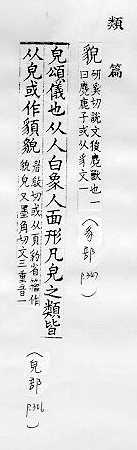 類篇
貎 研奚切說文狻麑獸也一
曰麑鹿子或从豸文一
(豸部 p.347)
皃頌儀也从人白象人面形凡皃之類皆
从皃或作䫉貌 眉敎切或从頁豹省籀作
貌皃又墨角切文三重音一
(皃部 p.306)